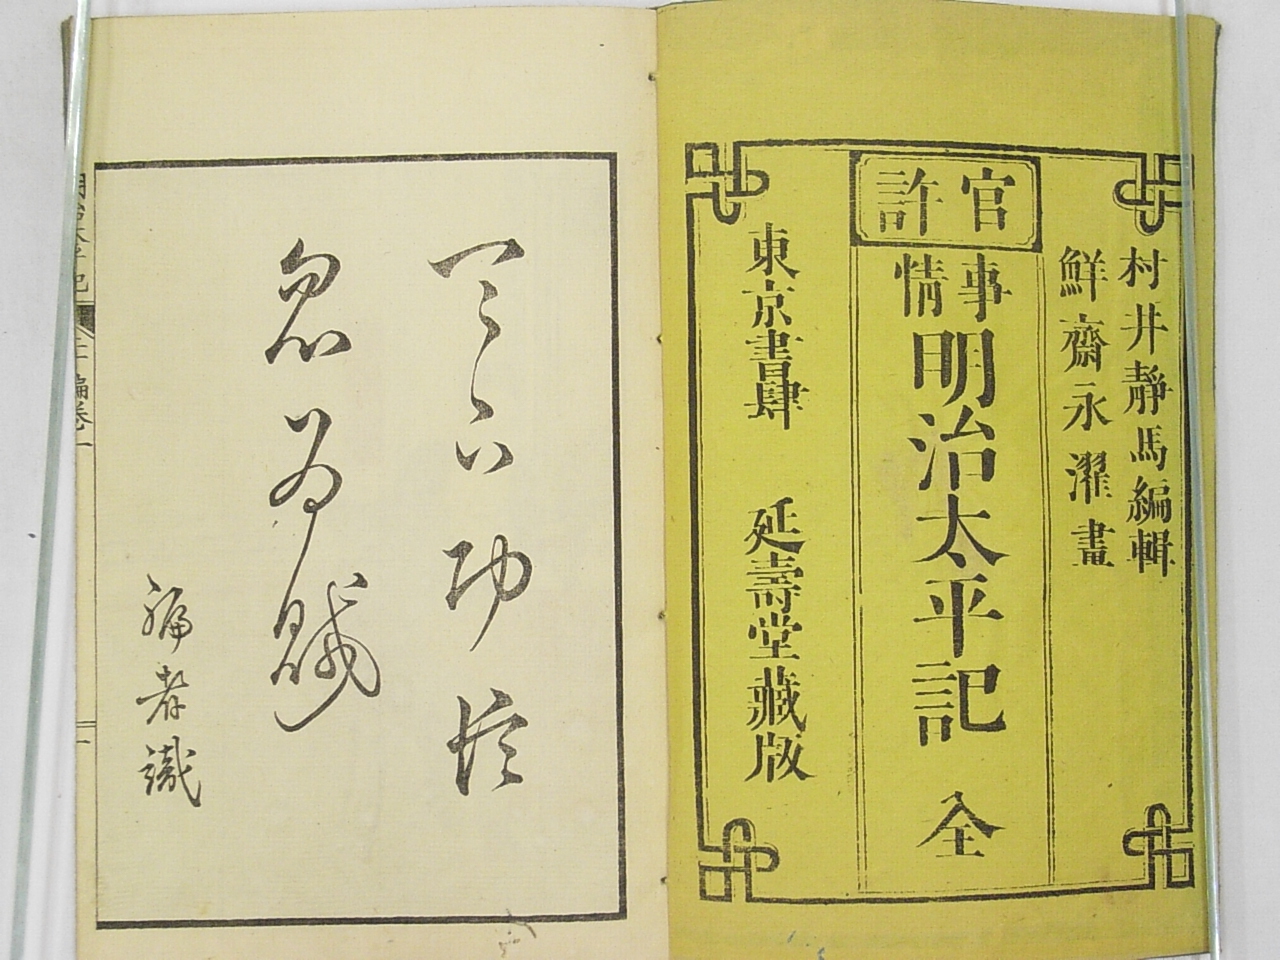 官許
村井靜馬編輯
鮮齋永濯畫
事情 明治太平記 全
東京書肆 延壽堂藏版
天下功
忽為賊
編者識
明治太平記 編卷一
一